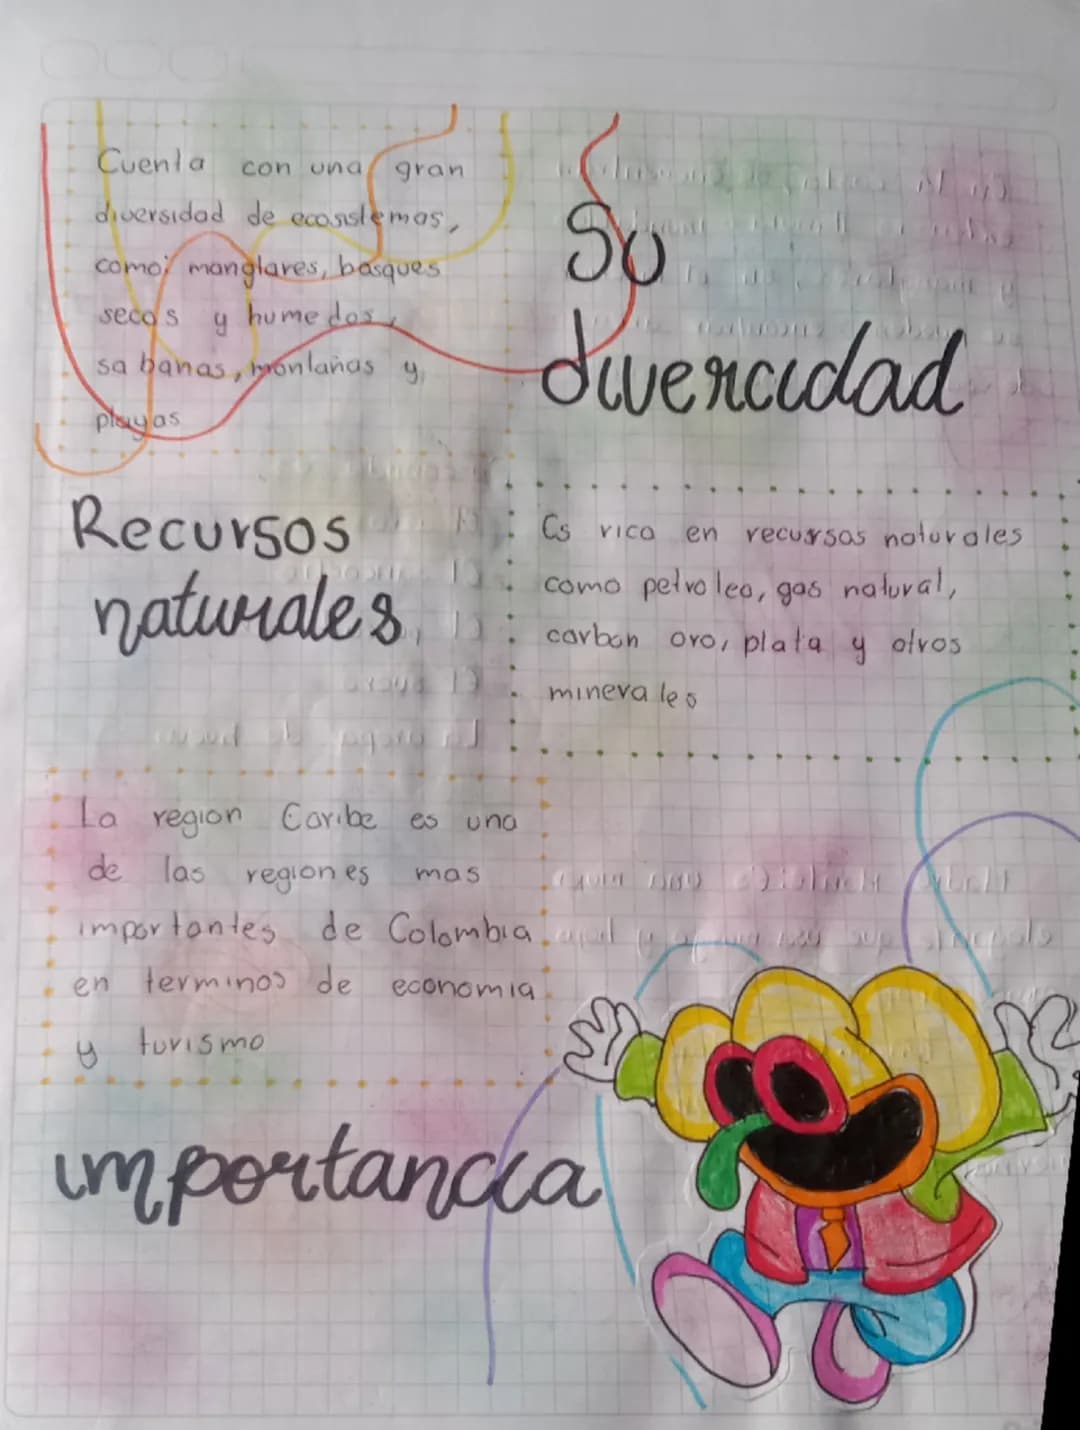 Cuenta con una gran
diversidad de ecosistemas,
como: manglares, bosques
secos y humedos,
sabanas, montañas y
playas
Su
divercidad
Recursos
naturales
Es rica en recursos naturales
como petroleo, gas natural,
carbon oro, plata y otros
minerales
La region Caribe es una
de las regiones mas
importantes de Colombia
en terminos de economia
y turismo
importancia